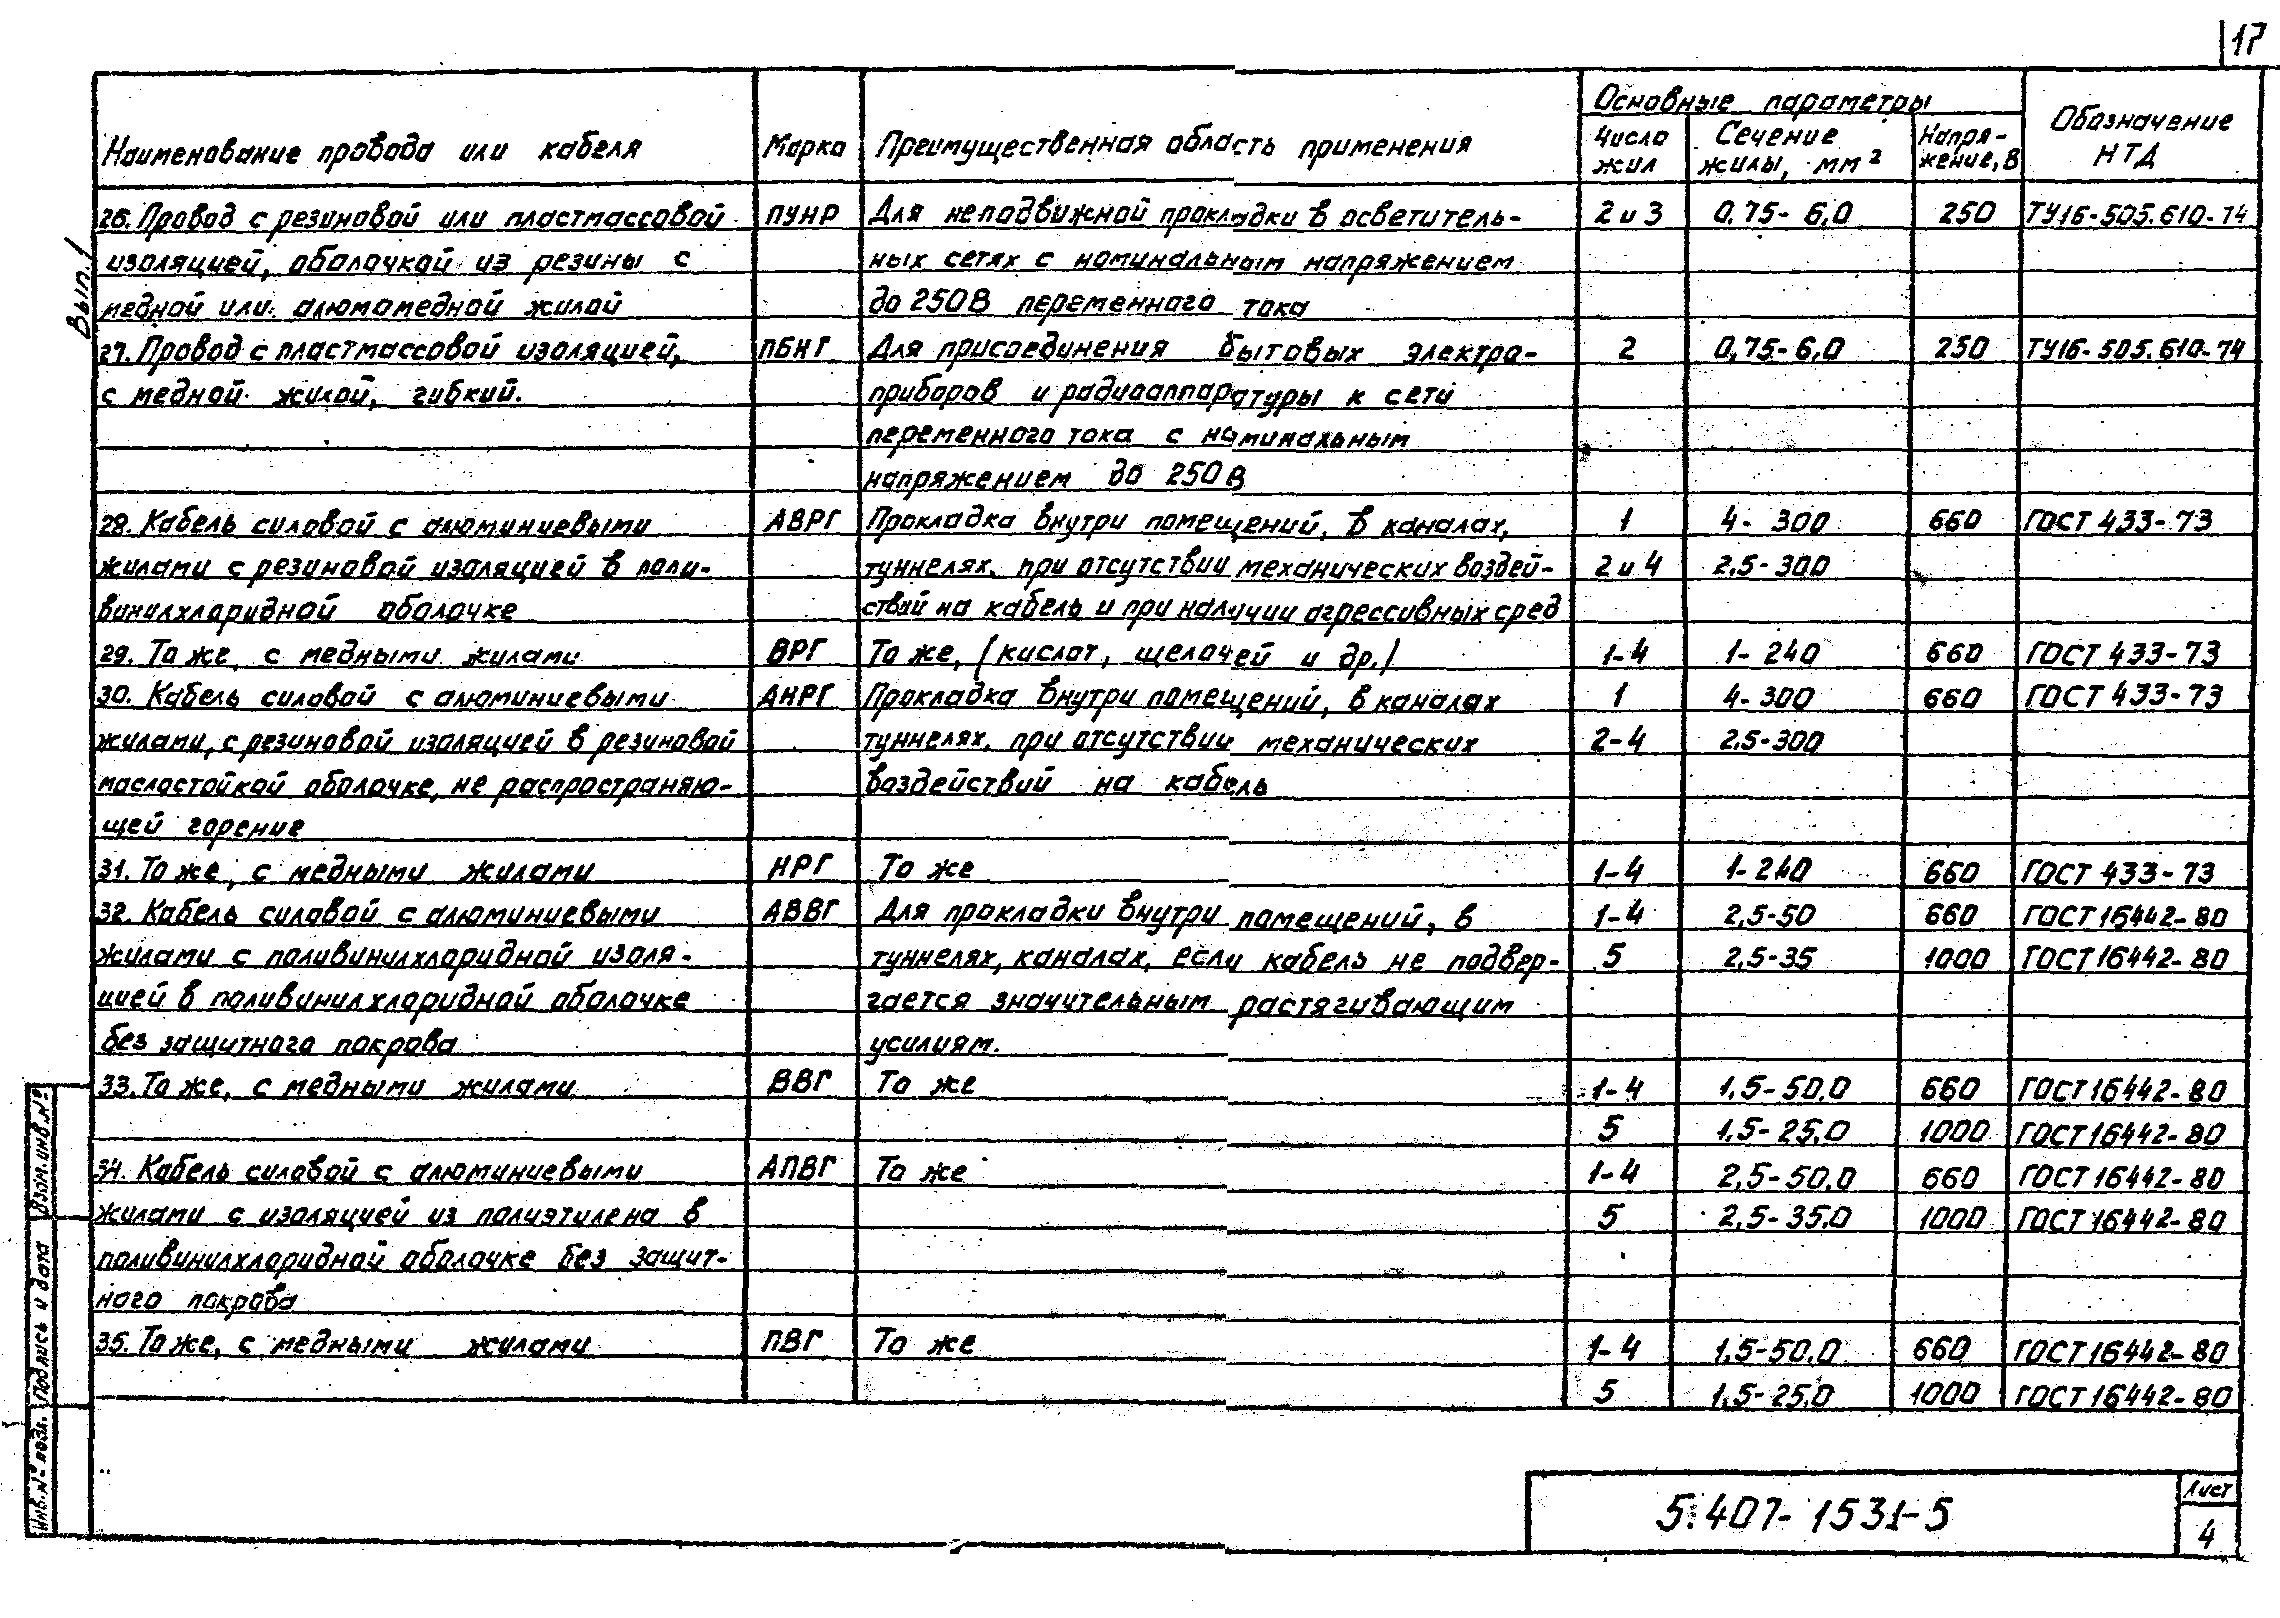 17
Наименование провода или кабеля Марка Преимущественная область применения Основные параметры Обозначение НТД
Число жил Сечение жилы, мм² Напря-жение, В
26. Провод с резиновой или пластмассовой ПУНР Для неподвижной прокладки в осветитель- 2 и 3 0.75-6,0 250 ТУ16-505.610-74
изоляцией, оболочкой из резины с ных сетях с номинальным напряжением
медной или алюмомедной жилой до 250В переменного тока
27. Провод с пластмассовой изоляцией, ПБНГ Для присоединения бытовых электро- 2 0,75-6,0 250 ТУ16-505.610-74
с медной жилой, гибкий. приборов и радиоаппаратуры к сети
переменного тока с номинальным
напряжением до 250В
28. Кабель силовой с алюминиевыми АВРГ Прокладка внутри помещений, в каналах, 1 4-300 660 ГОСТ 433-73
жилами с резиновой изоляцией в поли- туннелях, при отсутствии механических воздей- 2 и 4 2,5-300
винилхлоридной оболочке ствий на кабель и при наличии агрессивных сред
29. То же, с медными жилами ВРГ То же, (кислот, щелочей и др.) 1-4 1-240 660 ГОСТ 433-73
30. Кабель силовой с алюминиевыми АНРГ Прокладка внутри помещений, в каналах 1 4-300 660 ГОСТ 433-73
жилами, с резиновой изоляцией в резиновой туннелях, при отсутствии механических 2-4 2,5-300
маслостойкой оболочке, не распространяю- воздействий на кабель
щей горение
31. То же, с медными жилами НРГ То же 1-4 1-240 660 ГОСТ 433-73
32. Кабель силовой с алюминиевыми АВВГ Для прокладки внутри помещений, в 1-4 2,5-50 660 ГОСТ 16442-80
жилами с поливинилхлоридной изоля- туннелях, каналах, если кабель не подвер- 5 2,5-35 1000 ГОСТ 16442-80
цией в поливинилхлоридной оболочке гается значительным растягивающим
без защитного покрова усилиям.
33. То же, с медными жилами ВВГ То же 1-4 1,5-50,0 660 ГОСТ 16442-80
5 1,5-25,0 1000 ГОСТ 16442-80
34. Кабель силовой с алюминиевыми АПВГ То же 1-4 2,5-50,0 660 ГОСТ 16442-80
жилами с изоляцией из полиэтилена в 5 2,5-35,0 1000 ГОСТ 16442-80
поливинилхлоридной оболочке без защит-
ного покрова
35. То же, с медными жилами ПВГ То же 1-4 1,5-50,0 660 ГОСТ 16442-80
5 1,5-25,0 1000 ГОСТ 16442-80
Вып. 1
Инв. № подл. Подпись и дата Взам. инв. №
5.407-1531-5
Лист
4